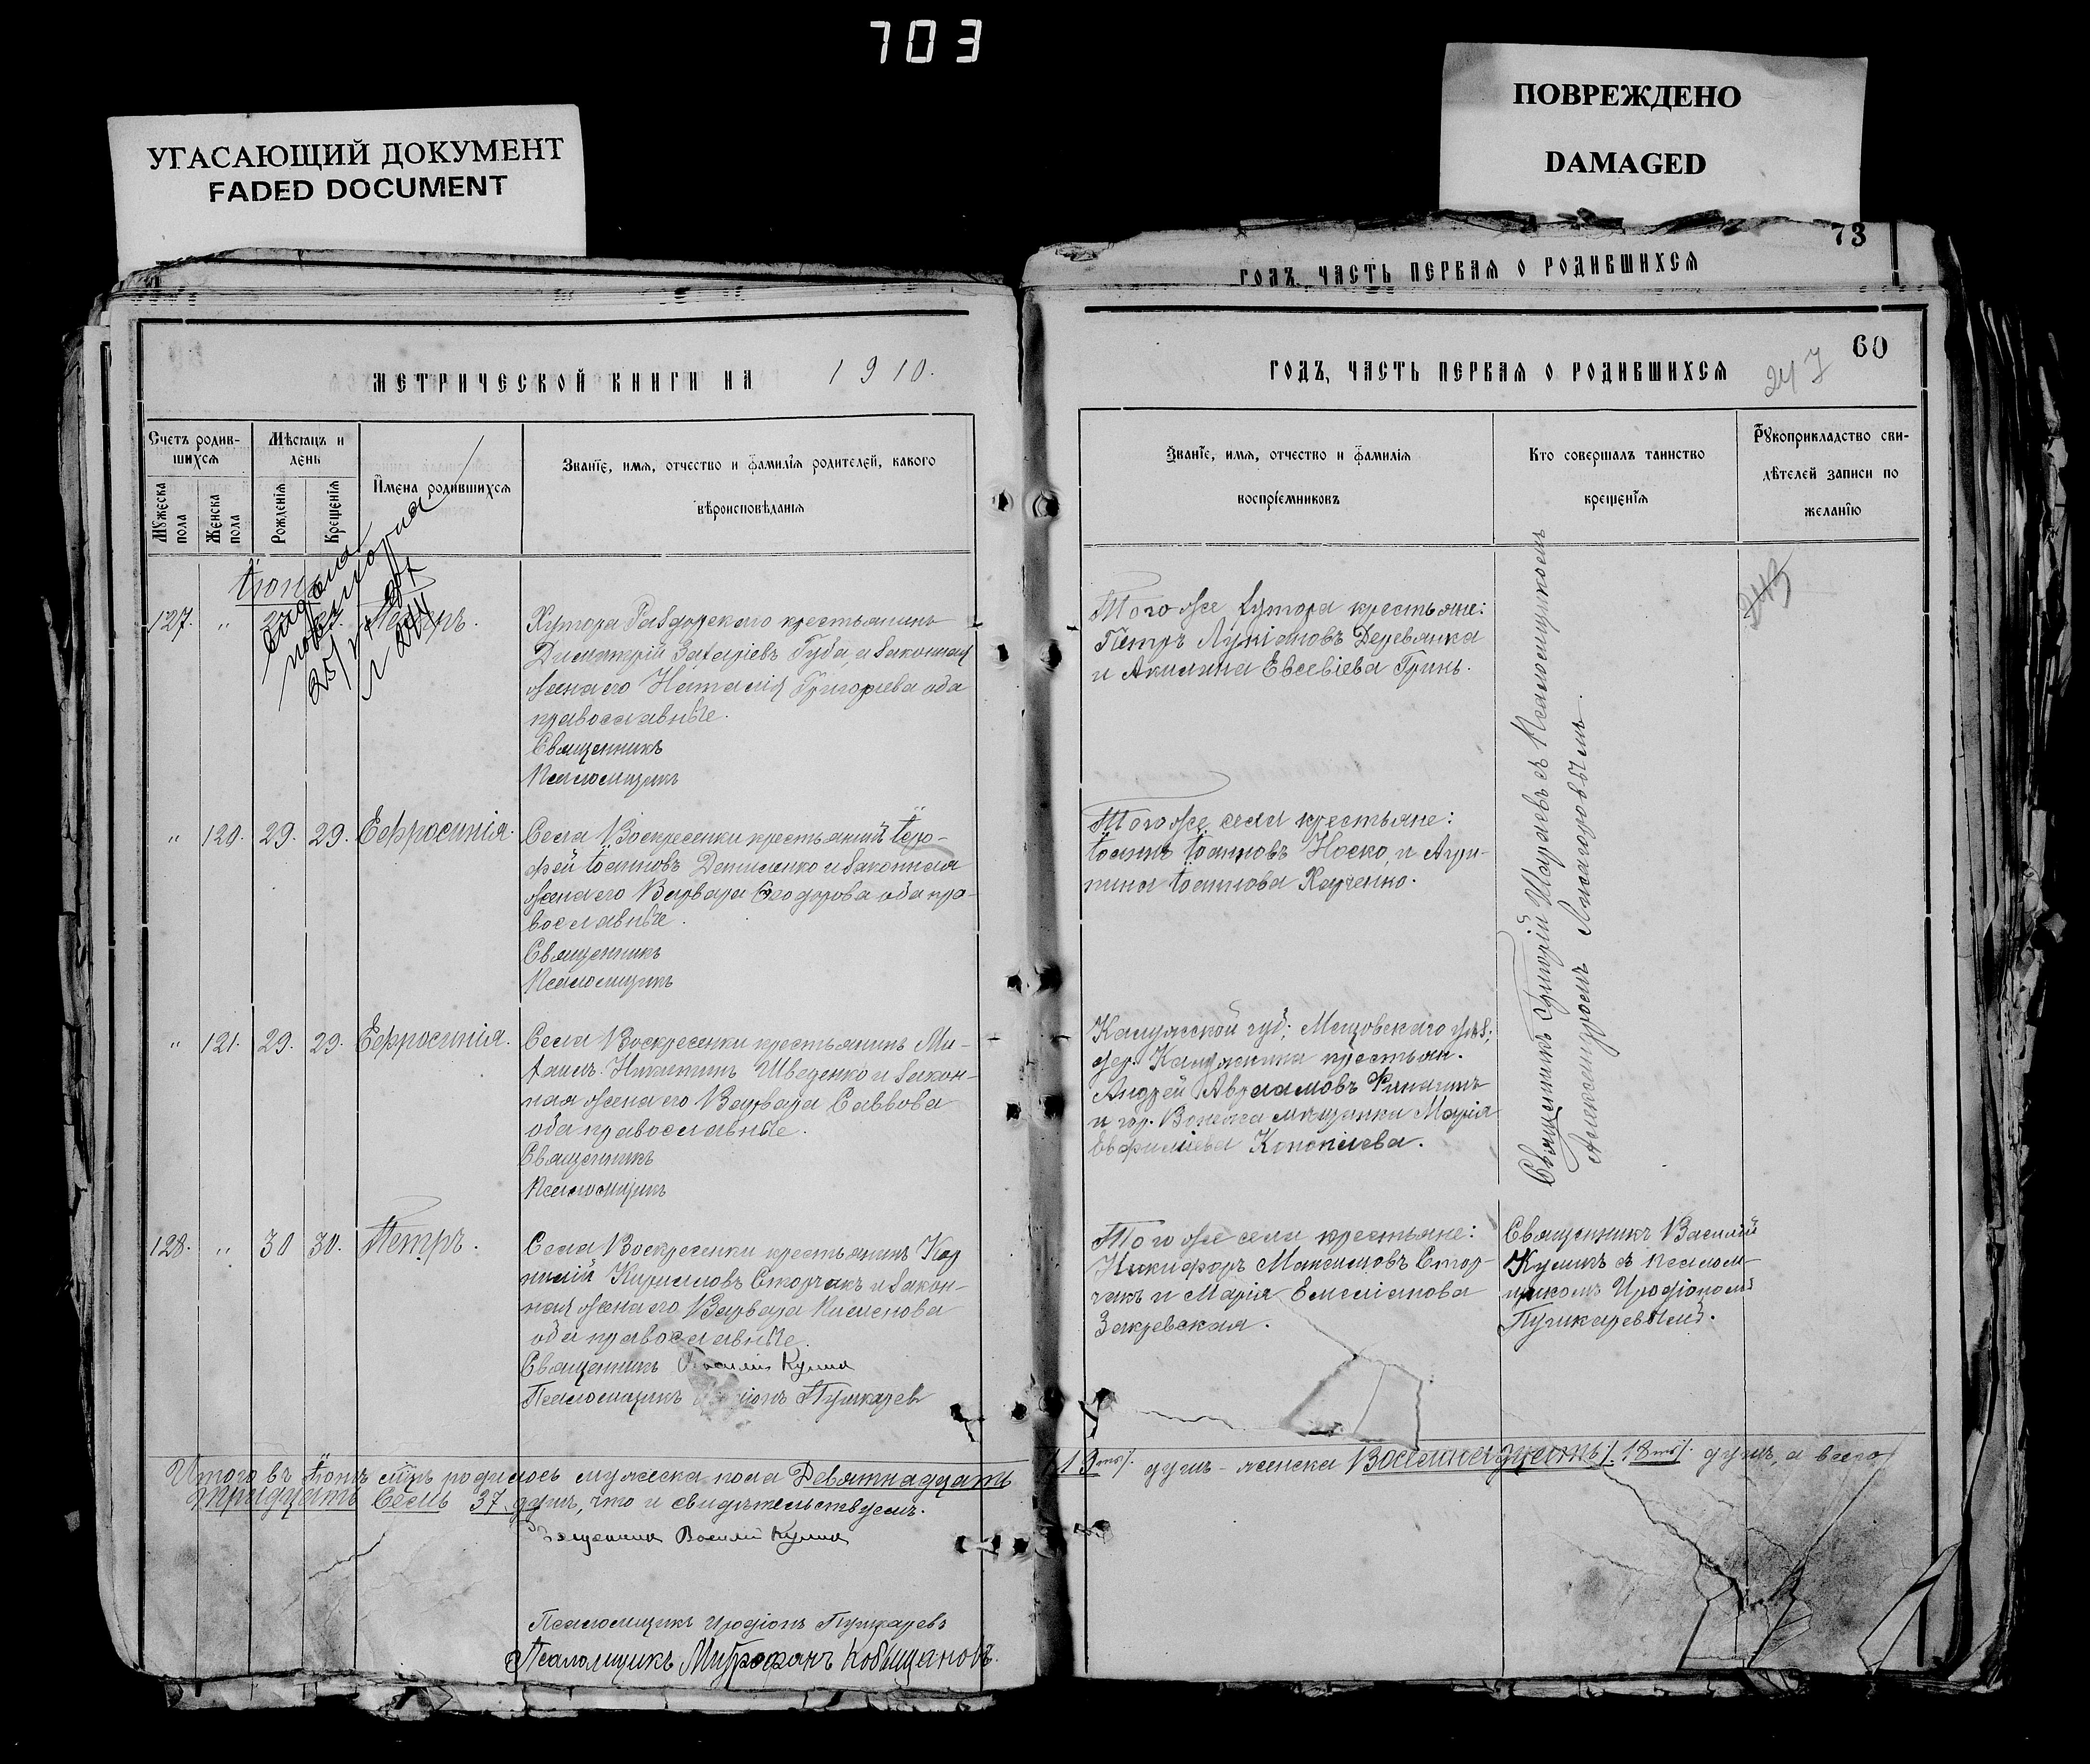 703
УГАСАЮЩИЙ ДОКУМЕНТ
FADED DOCUMENT
ПОВРЕЖДЕНО
DAMAGED
73
годъ, часть первая о родившихся
60
247
Метрической книги на 1910.
годъ, часть первая о родившихся
Счетъ родив-
шихся
Мужеска пола
Женска пола
Мѣсяцъ и
день
Рожденія
Крещенія
Имена родившихся
Званіе, имя, отчество и фамилія родителей, какого
вѣроисповѣданія
Званіе, имя, отчество и фамилія
воспріемниковъ
Кто совершалъ таинство
крещенія
Рукоприкладство сви-
дѣтелей записи по
желанію
127. " Петръ.
Хутора крестьянинъ
Димитрій Захаріевъ Губа, и законная
жена его Наталія Григоріева оба
православные.
Священникъ
Псаломщикъ
Того же хутора крестьяне:
Петръ Лукіановъ Деревянка
и Акилина Евсевіева Гринь.
" 120. 29. 29. Ефросинія.
Села Воскресенки крестьянинъ Іеро-
фей Іоанновъ Даниленко и законная
жена его Варвара Ѳеодорова оба пра-
вославные.
Священникъ
Псаломщикъ
Того же села крестьяне:
Іоаннъ Іоанновъ Носко, и Агри-
пина Іоаннова Харченко.
" 121. 29. 29. Ефросинія.
Села Воскресенки крестьянинъ Ми-
хаилъ Никитинъ Шведенко и закон-
ная жена его Варвара Саввова
оба православные.
Священникъ
Псаломщикъ
Калужской губ; Мещовскаго уѣз;
дер. крестьян.
Андрей Авраамовъ
и гор. мѣщанка Марія
Евфиміева
Священникъ Григорій съ Псаломщикомъ
Александромъ
128. " 30 30. Петръ.
Села Воскресенки крестьянинъ Кор
нилій Кирилловъ Сторчакъ и закон-
ная жена его Варвара
оба православные.
Священникъ Василій Кулик
Псаломщикъ Иродіонъ Пушкарев
Того же села крестьяне:
Никифоръ Максимовъ Стор-
чакъ и Марія Емеліанова
Закревская.
Священникъ Василій
Куликъ съ псалом-
щикомъ Иродіономъ
Пушкаревымъ.
Итого въ Іюнѣ м-цѣ родилось мужеска пола Девятнадцать /19ть/. душъ - женска Восемнадцать /. 18ть/. душъ, а всего
тридцать семь 37. душъ, что и свидѣтельствуемъ.
Священник Василій Кулик
Псаломщикъ Иродіонъ Пушкаревъ
Псаломщикъ Митрофанъ Кобыщановъ.